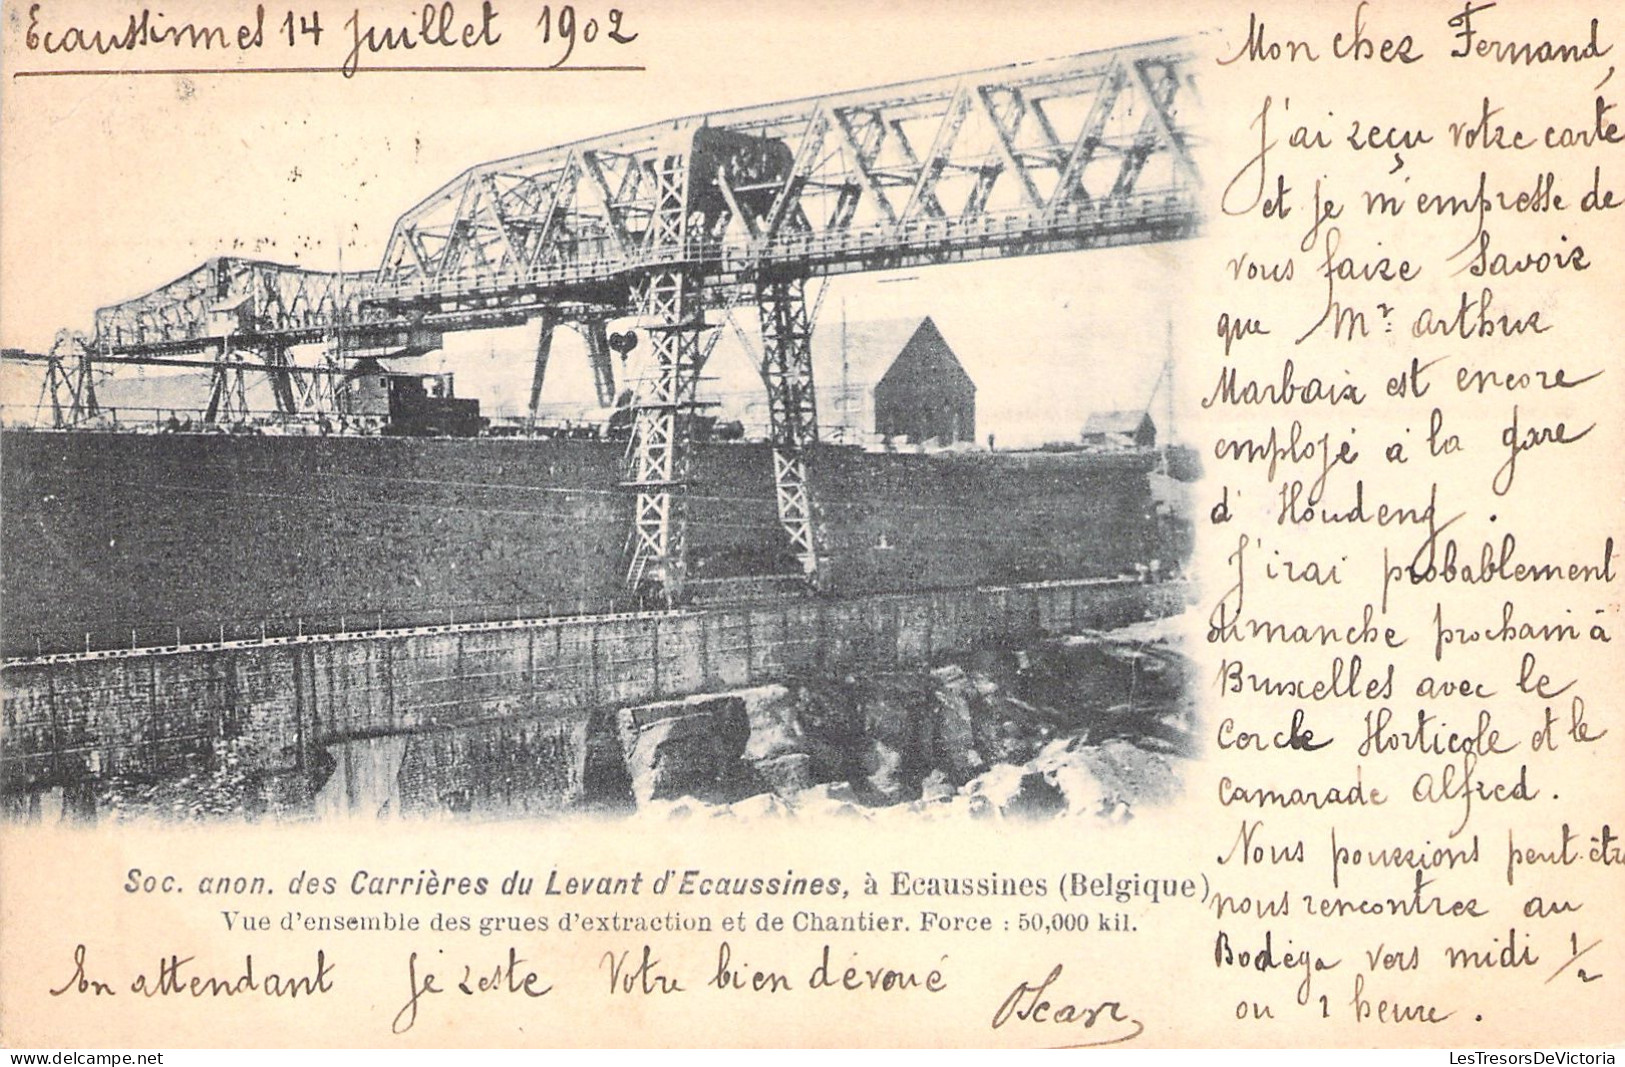 Ecaussinnes 14 Juillet 1902
Mon cher Fernand,
J'ai reçu votre carte
et je m'empresse de
vous faire savoir
que Mr. Arthur
Marbaix est encore
employé à la gare
d'Houdeng.
J'irai probablement
dimanche prochain à
Bruxelles avec le
Cercle Horticole et le
camarade Alfred.
Nous pourrions peut-être
nous rencontrer au
Bodéga vers midi 1/2
ou 1 heure.
Soc. anon. des Carrières du Levant d'Ecaussines, à Ecaussines (Belgique)
Vue d'ensemble des grues d'extraction et de Chantier. Force : 50,000 kil.
En attendant je reste Votre bien dévoué
Oscar
LesTresorsDeVictoria
LesTresorsDeVictoria.com